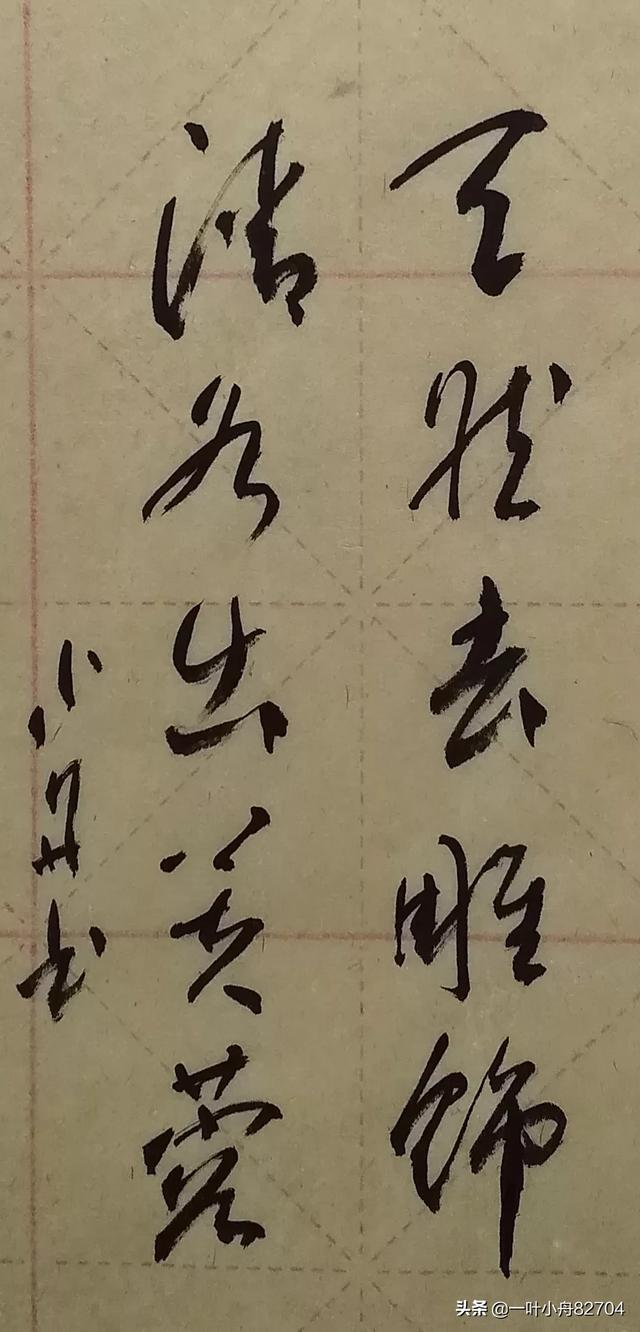 天然去雕饰
清水出芙蓉
小舟书
头条 @一叶小舟82704